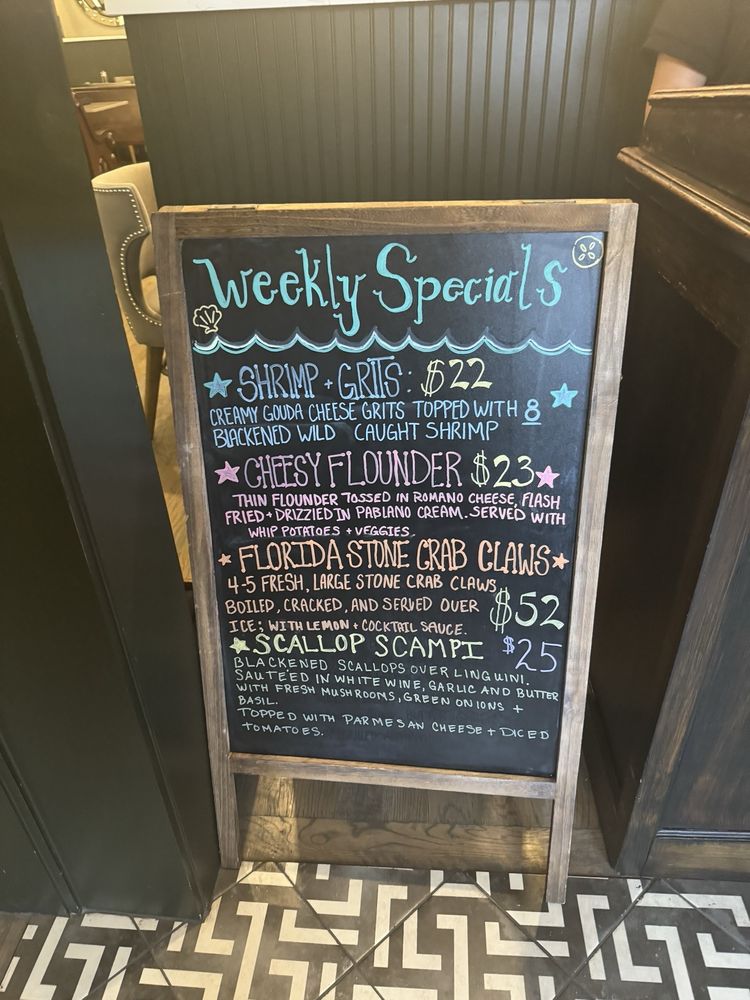 Weekly Specials
SHRIMP + GRITS: $22
CREAMY GOUDA CHEESE GRITS TOPPED WITH 8
BLACKENED WILD CAUGHT SHRIMP
CHEESY FLOUNDER $23
THIN FLOUNDER TOSSED IN ROMANO CHEESE, FLASH
FRIED + DRIZZIED IN PABLANO CREAM. SERVED WITH
WHIP POTATOES + VEGGIES.
FLORIDA STONE CRAB CLAWS
4-5 FRESH, LARGE STONE CRAB CLAWS,
BOILED, CRACKED, AND SERVED OVER $52
ICE; WITH LEMON + COCKTAIL SAUCE.
SCALLOP SCAMPI $25
BLACKENED SCALLOPS OVER LINGUINI.
SAUTÉED IN WHITE WINE, GARLIC AND BUTTER
WITH FRESH MUSHROOMS, GREEN ONIONS +
BASIL.
TOPPED WITH PARMESAN CHEESE + DICED
TOMATOES.